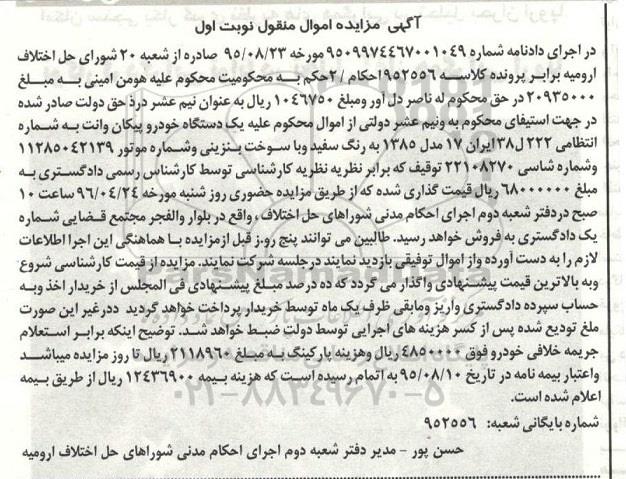 آگهی مزایده اموال منقول نوبت اول
در اجرای دادنامه شماره ۹۵۰۹۹۷۴۴۶۷۰۰۱۰۴۹ مورخه ۹۵/۰۸/۲۳ صادره از شعبه ۲۰ شورای حل اختلاف
ارومیه برابر پرونده کلاسه ۹۵۲۵۵۶ احکام / ۲حکم به محکومیت محکوم علیه هومن امینی به مبلغ
۲۰۹۳۵۰۰۰ در حق محکوم له ناصر دل اور ومبلغ ۱۰۴۶۷۵۰ ریال به عنوان نیم عشر درذ حق دولت صادر شده
در جهت استیفای محکوم به ونیم عشر دولتی از اموال محکوم علیه یک دستگاه خودرو پیکان وانت به شماره
انتظامی ۲۲۲ ل۳۸ ایران ۱۷ مدل ۱۳۸۵ به رنگ سفید وبا سوخت بنزینی وشماره موتور ۱۱۲۸۵۰۴۲۱۳۹
وشماره شاسی ۲۲۱۰۸۲۷۰ توقیف که برابر نظریه نظریه کارشناسی توسط کارشناس رسمی دادگستری به
مبلغ ۶۸۰۰۰۰۰۰ ریال قیمت گذاری شده که از طریق مزایده حضوری روز شنبه مورخه ۹۶/۰۴/۲۴ ساعت ۱۰
صبح دردفتر شعبه دوم اجرای احکام مدنی شوراهای حل اختلاف ،واقع در بلوار والفجر مجتمع قضایی شماره
یک دادگستری به فروش خواهد رسید. طالبین می توانند پنج رو.ز قبل ازمزایده با هماهنگی این اجرا اطلاعات
لازم را به دست آورده واز اموال توقیفی بازدید نمایند درجلسه شرکت نمایند. مزایده از قیمت کارشناسی شروع
وبه بالاترین قیمت پیشنهادی واگذار می گردد که ده درصد مبلغ پیشنهادی فی المجلس از خریدار اخذ وبه
حساب سپرده دادگستری واریز ومابقی ظرف یک ماه توسط خریدار پرداخت خواهد گردید ددرغیر این صورت
ملغ تودیع شده پس از کسر هزینه های اجرایی توسط دولت ضبط خواهد شد. توضیح اینکه برابر استعلام
جریمه خلافی خودرو فوق ۴۸۵۰۰۰۰ ریال وهزینه پارکینگ به مبلغ ۲۱۱۸۹۶۰ ریال تا روز مزایده میباشد
واعتبار بیمه نامه در تاریخ ۹۵/۰۸/۱۰ به اتمام رسیده است که هزینه بیمه ۱۲۴۳۶۹۰۰ ریال از طریق بیمه
اعلام شده است.
شماره بایگانی شعبه: ۹۵۲۵۵۶
حسن پور - مدیر دفتر شعبه دوم اجرای احکام مدنی شوراهای حل اختلاف ارومیه